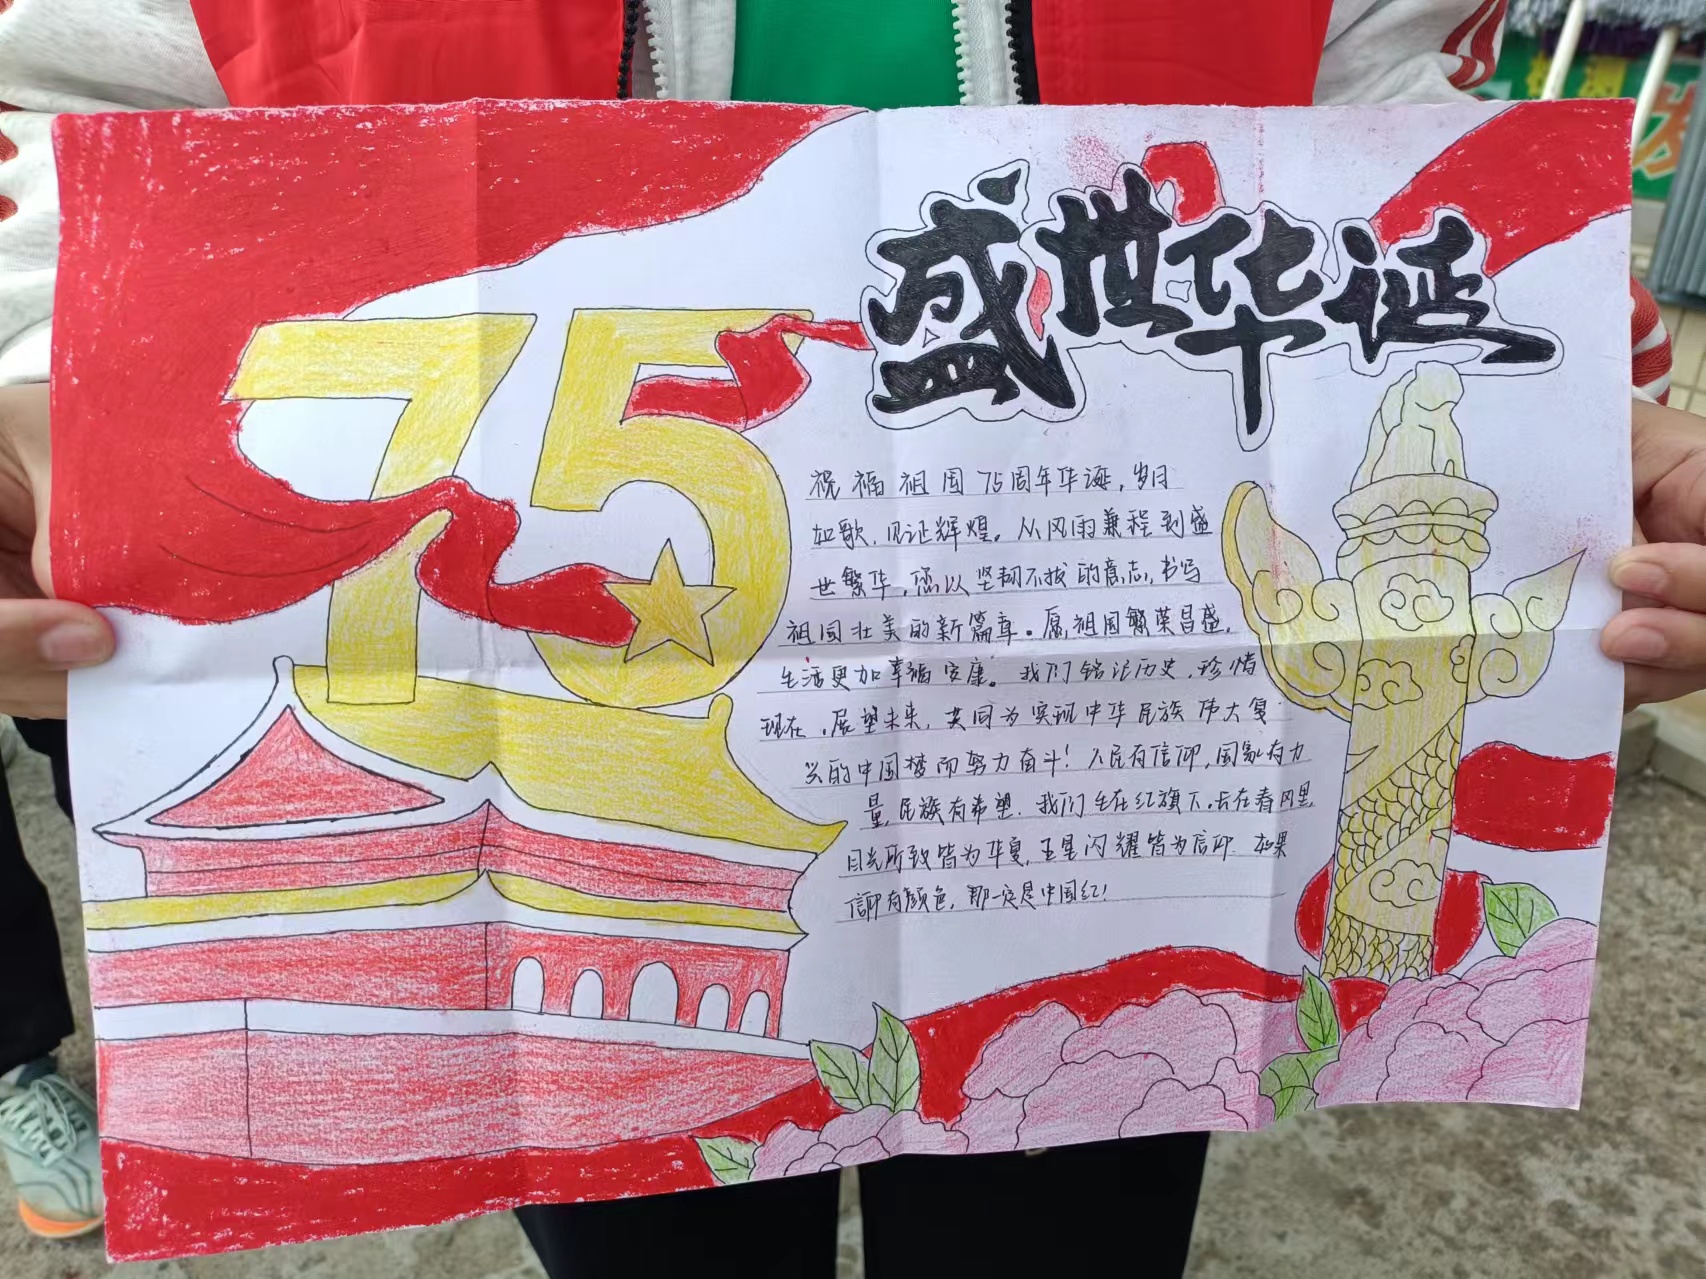 盛世华诞
75
祝福祖国75周年华诞，岁月
如歌，见证辉煌。从风雨兼程到盛
世繁华，您以坚韧不拔的意志，书写
祖国壮美的新篇章。愿祖国繁荣昌盛，
生活更加幸福安康。我们铭记历史，珍惜
现在，展望未来，共同为实现中华民族伟大复
兴的中国梦而努力奋斗！人民有信仰，国家有力
量，民族有希望。我们生在红旗下，长在春风里，
目光所致皆为华夏，五星闪耀皆为信仰 如果
信仰有颜色，那一定是中国红！